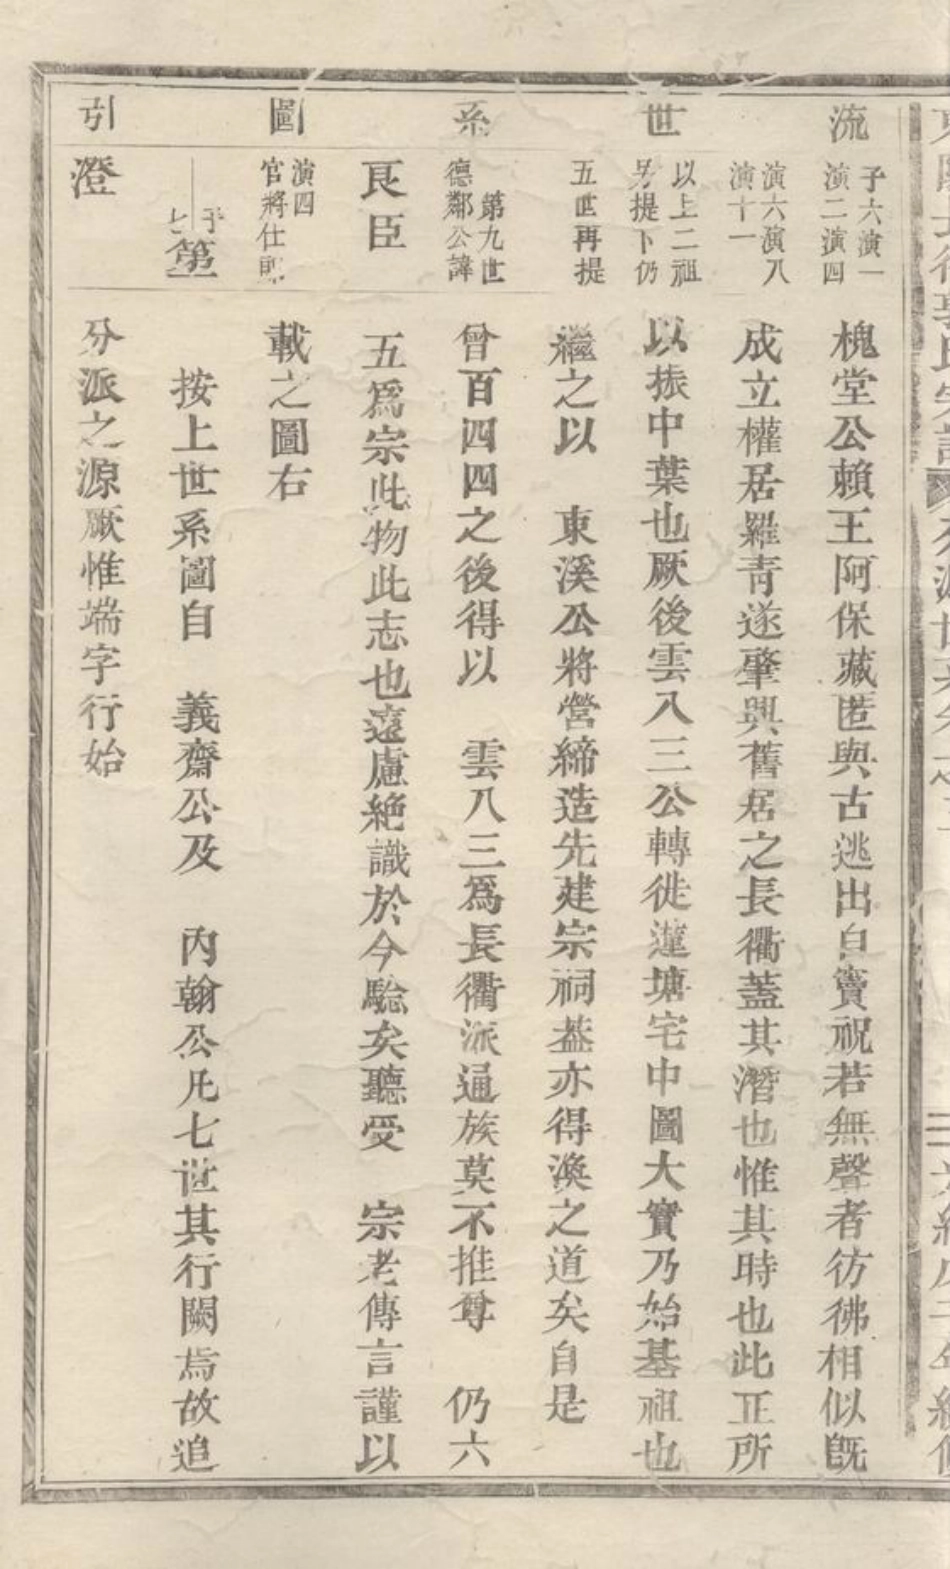 流世系圖引
子六演一
演二演四
演六演八
演十一
以上二祖
另提下仍
五世再提
第九世
德鄰公諱
良臣
演四
官將仕郎
子
第
澄
槐堂公賴王阿保藏匿與古逃出自竇祝若無聲者彷彿相似旣
成立權居羅青遂肇興舊居之長衢蓋其潛也惟其時也此正所
以振中葉也厥後雲八三公轉徙蓮塘宅中圖大實乃始基祖也
繼之以 東溪公將營締造先建宗祠蓋亦得渙之道矣自是
曾百四四之後得以 雲八三爲長衢派通族莫不推尊 仍六
五爲宗此物此志也遠慮絕識於今騐矣聽受 宗老傳言謹以
載之圖右
按上世系圖自 義齋公及 內翰公凡七世其行闕焉故追
分派之源厥惟端字行始